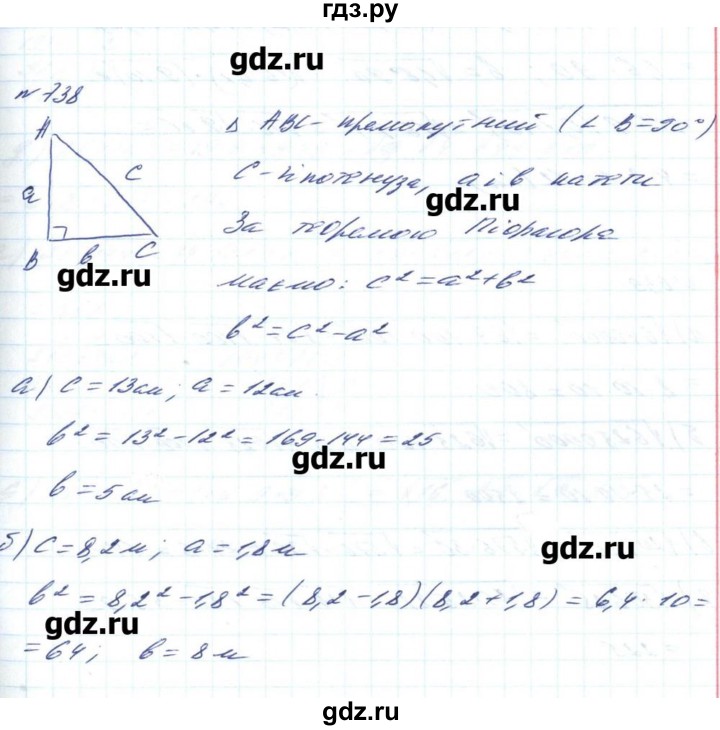 гдз.ру
gdz.ru
№ 738
A
Δ ABC - прямокутний (∠ B=90°)
a
c
c - гіпотенуза, a і b катети
gdz.ru
B
b
C
За теоремою Піфагора
gdz.ru
маємо: c² = a² + b²
b² = c² - a²
а) c = 13 см; a = 12 см.
b² = 13² - 12² = 169 - 144 = 25
gdz.ru
b = 5 см
б) c = 8,2 м; a = 1,8 м
gdz.ru
b² = 8,2² - 1,8² = (8,2 - 1,8)(8,2 + 1,8) = 6,4 · 10 =
gdz.ru
= 64; b = 8 м
gdz.ru